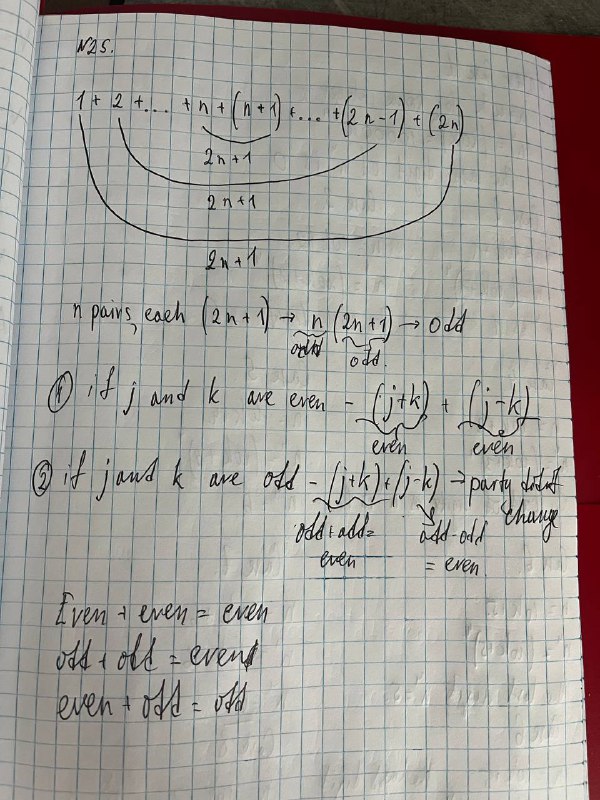 N25.
1 + 2 + ... + n + (n+1) + ... + (2n-1) + (2n)
2n+1
2n+1
2n+1
n pairs, each (2n+1) → n (2n+1) → odd
odd odd.
① if j and k are even - (j+k) + (j-k)
even even
② if j and k are odd - (j+k) + (j-k) → party
change
odd + odd = odd - odd
even = even.
Even + even = even
odd + odd = even
even + odd = odd